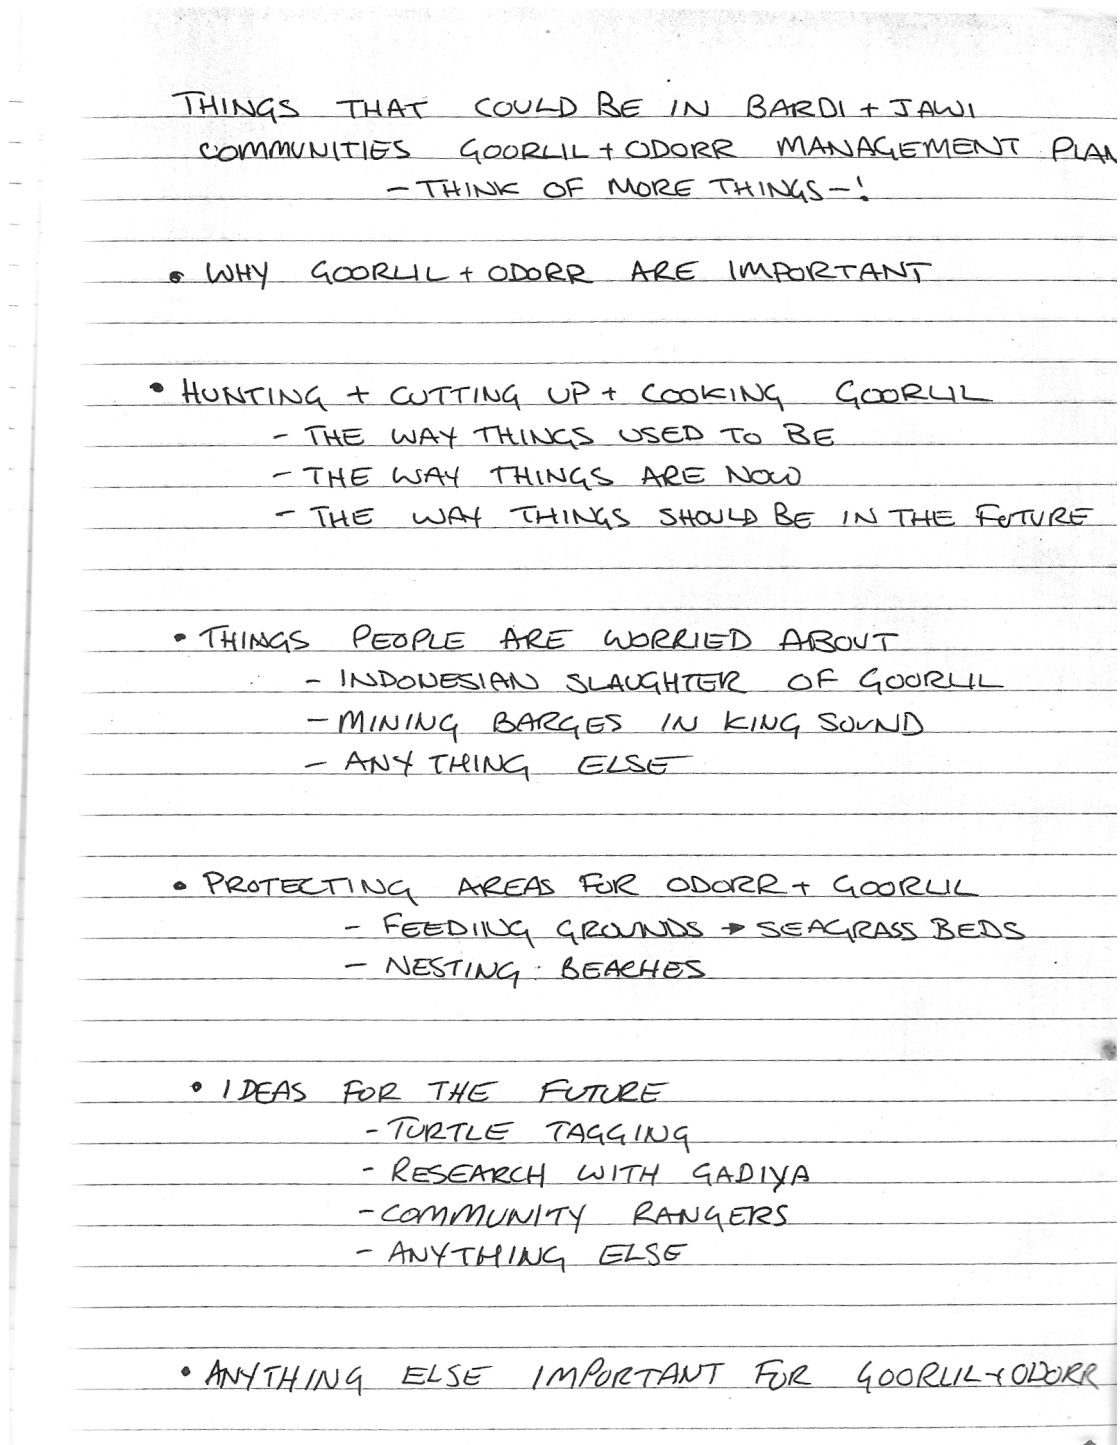 THINGS THAT COULD BE IN BARDI + JAWI
COMMUNITIES GOORLIL + ODORR MANAGEMENT PLAN
- THINK OF MORE THINGS - !
• WHY GOORLIL + ODORR ARE IMPORTANT
• HUNTING + CUTTING UP + COOKING GOORLIL
- THE WAY THINGS USED TO BE
- THE WAY THINGS ARE NOW
- THE WAY THINGS SHOULD BE IN THE FUTURE
• THINGS PEOPLE ARE WORRIED ABOUT
- INDONESIAN SLAUGHTER OF GOORLIL
- MINING BARGES IN KING SOUND
- ANY THING ELSE
• PROTECTING AREAS FOR ODORR + GOORLIL
- FEEDING GROUNDS → SEAGRASS BEDS
- NESTING BEACHES
• IDEAS FOR THE FUTURE
- TURTLE TAGGING
- RESEARCH WITH GADIYA
- COMMUNITY RANGERS
- ANYTHING ELSE
• ANYTHING ELSE IMPORTANT FOR GOORLIL + ODORR